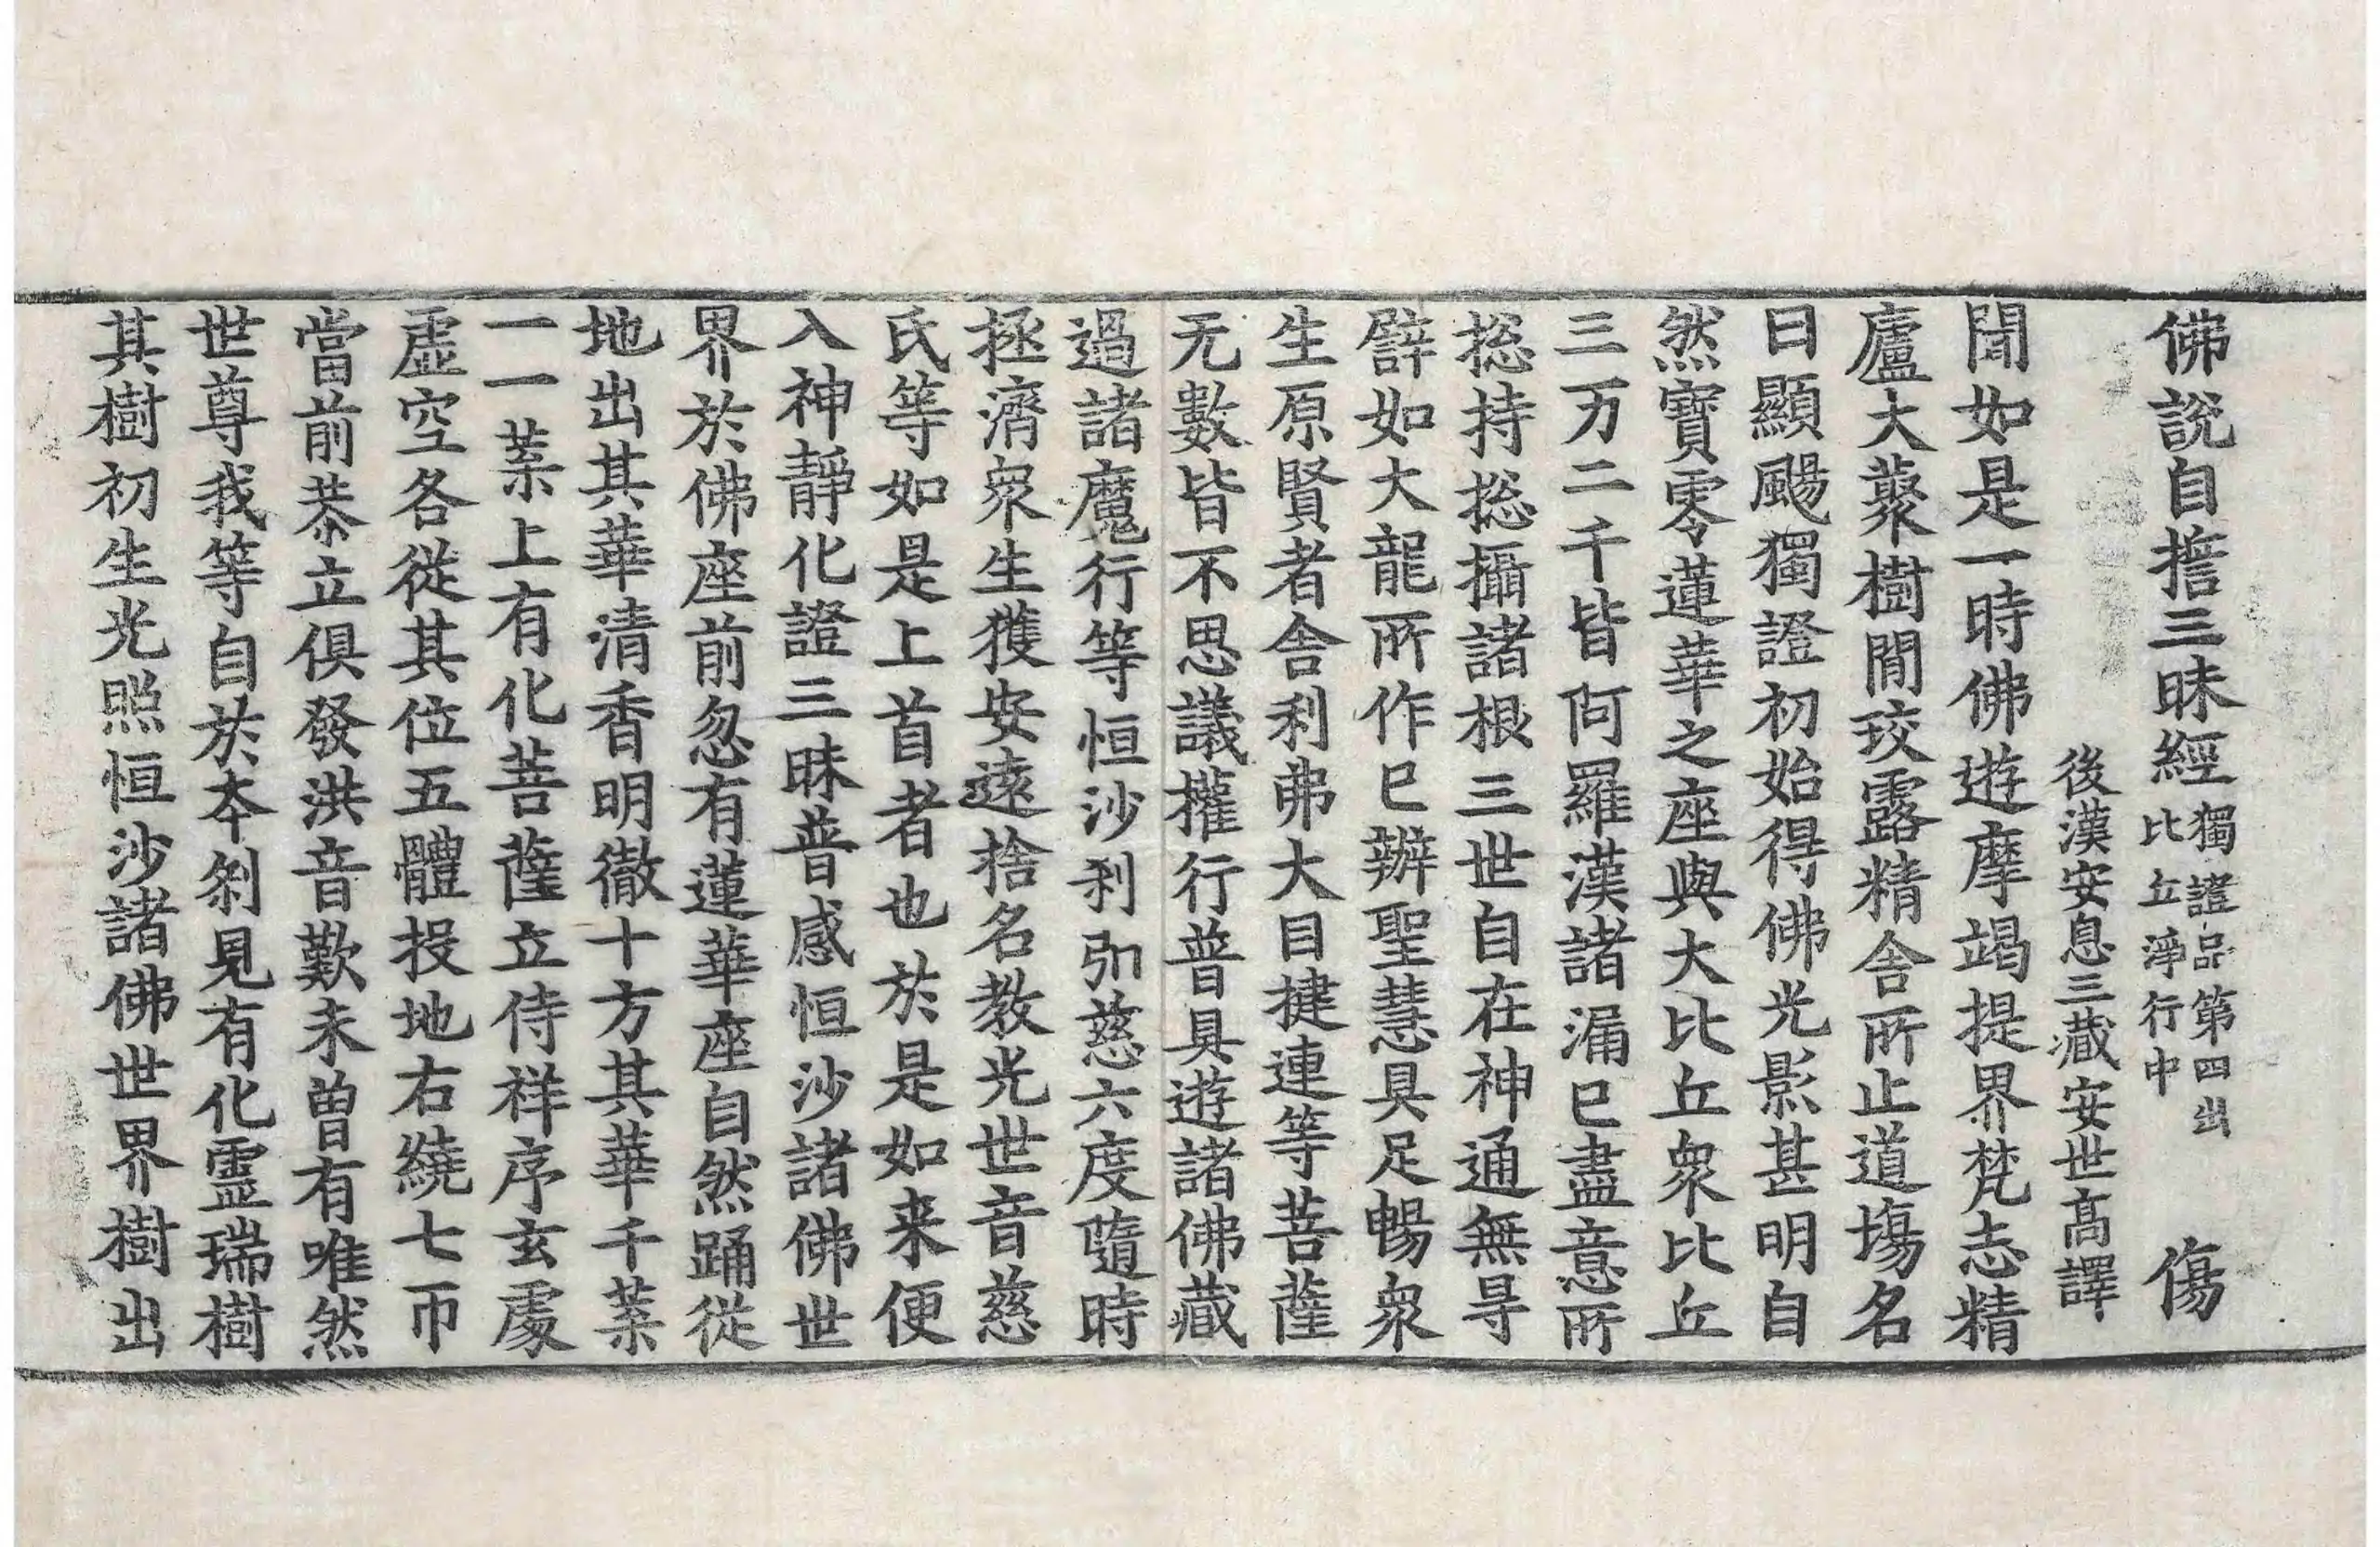 佛說自誓三昧經 獨證品第四出比丘淨行中 傷
後漢安息三藏安世高譯
聞如是一時佛遊摩竭提界梵志精
廬大藂樹閒珓露精舍所止道場名
曰顯颺獨證初始得佛光影甚明自
然寶零蓮華之座與大比丘衆比丘
三万二千皆阿羅漢諸漏已盡意所
捴持捴攝諸根三世自在神通無㝵
譬如大龍所作已辦聖慧具足暢衆
生原賢者舍利弗大目揵連等菩薩
无數皆不思議權行普具遊諸佛藏
過諸魔行等恒沙刹弘慈六度隨時
拯濟衆生獲安遠捨名教光世音慈
氏等如是上首者也於是如来便
入神靜化證三昧普感恒沙諸佛世
界於佛座前忽有蓮華座自然踊從
地出其華清香明徹十方其華千葉
一一葉上有化菩薩立侍祥序玄處
虛空各從其位五體投地右繞七帀
當前恭立俱發洪音歎未曾有唯然
世尊我等自於本刹見有化靈瑞樹
其樹初生光照恒沙諸佛世界樹出